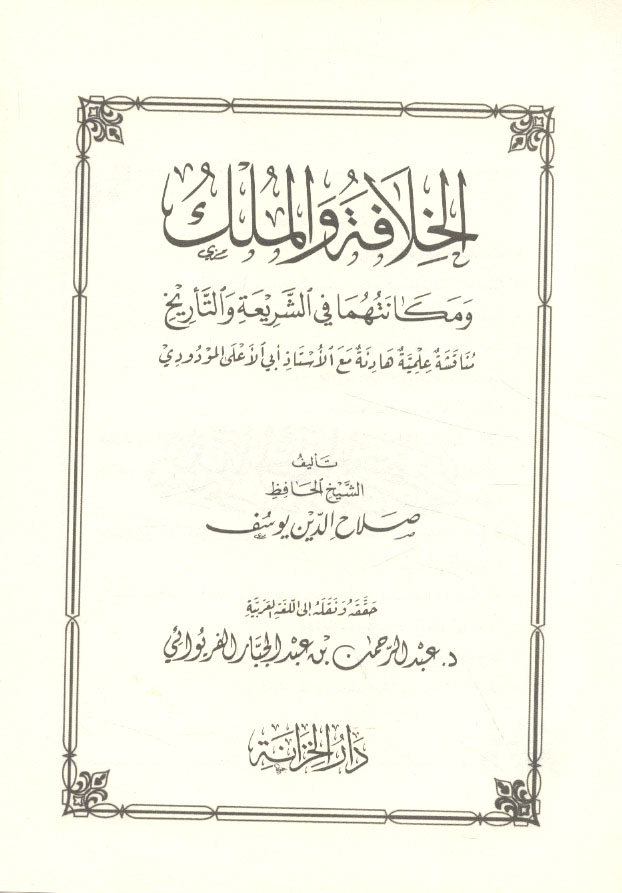 الخِلَافَةُ وَالمُلْكُ
وَمَكَانَتُهُمَا فِي الشَّرِيعَةِ وَالتَّأْرِيخِ
مُنَاقَشَةٌ عِلْمِيَّةٌ هَادِئَةٌ مَعَ الأُسْتَاذِ أَبِي الأَعْلَى المَوْدُودِيِّ
تَأليفُ
الشَّيْخِ الحَافِظِ
صَلَاحِ الدِّيْنِ يوسُف
حَقَّقَهُ وَنَقَلَهُ إِلَى اللُّغَةِ العَرَبِيَّةِ
د. عَبْدُ الرَّحْمَنِ بْنُ عَبْدِ الجَبَّارِ الفَرِيْوَائِي
دَارُ الخِزَانَةِ